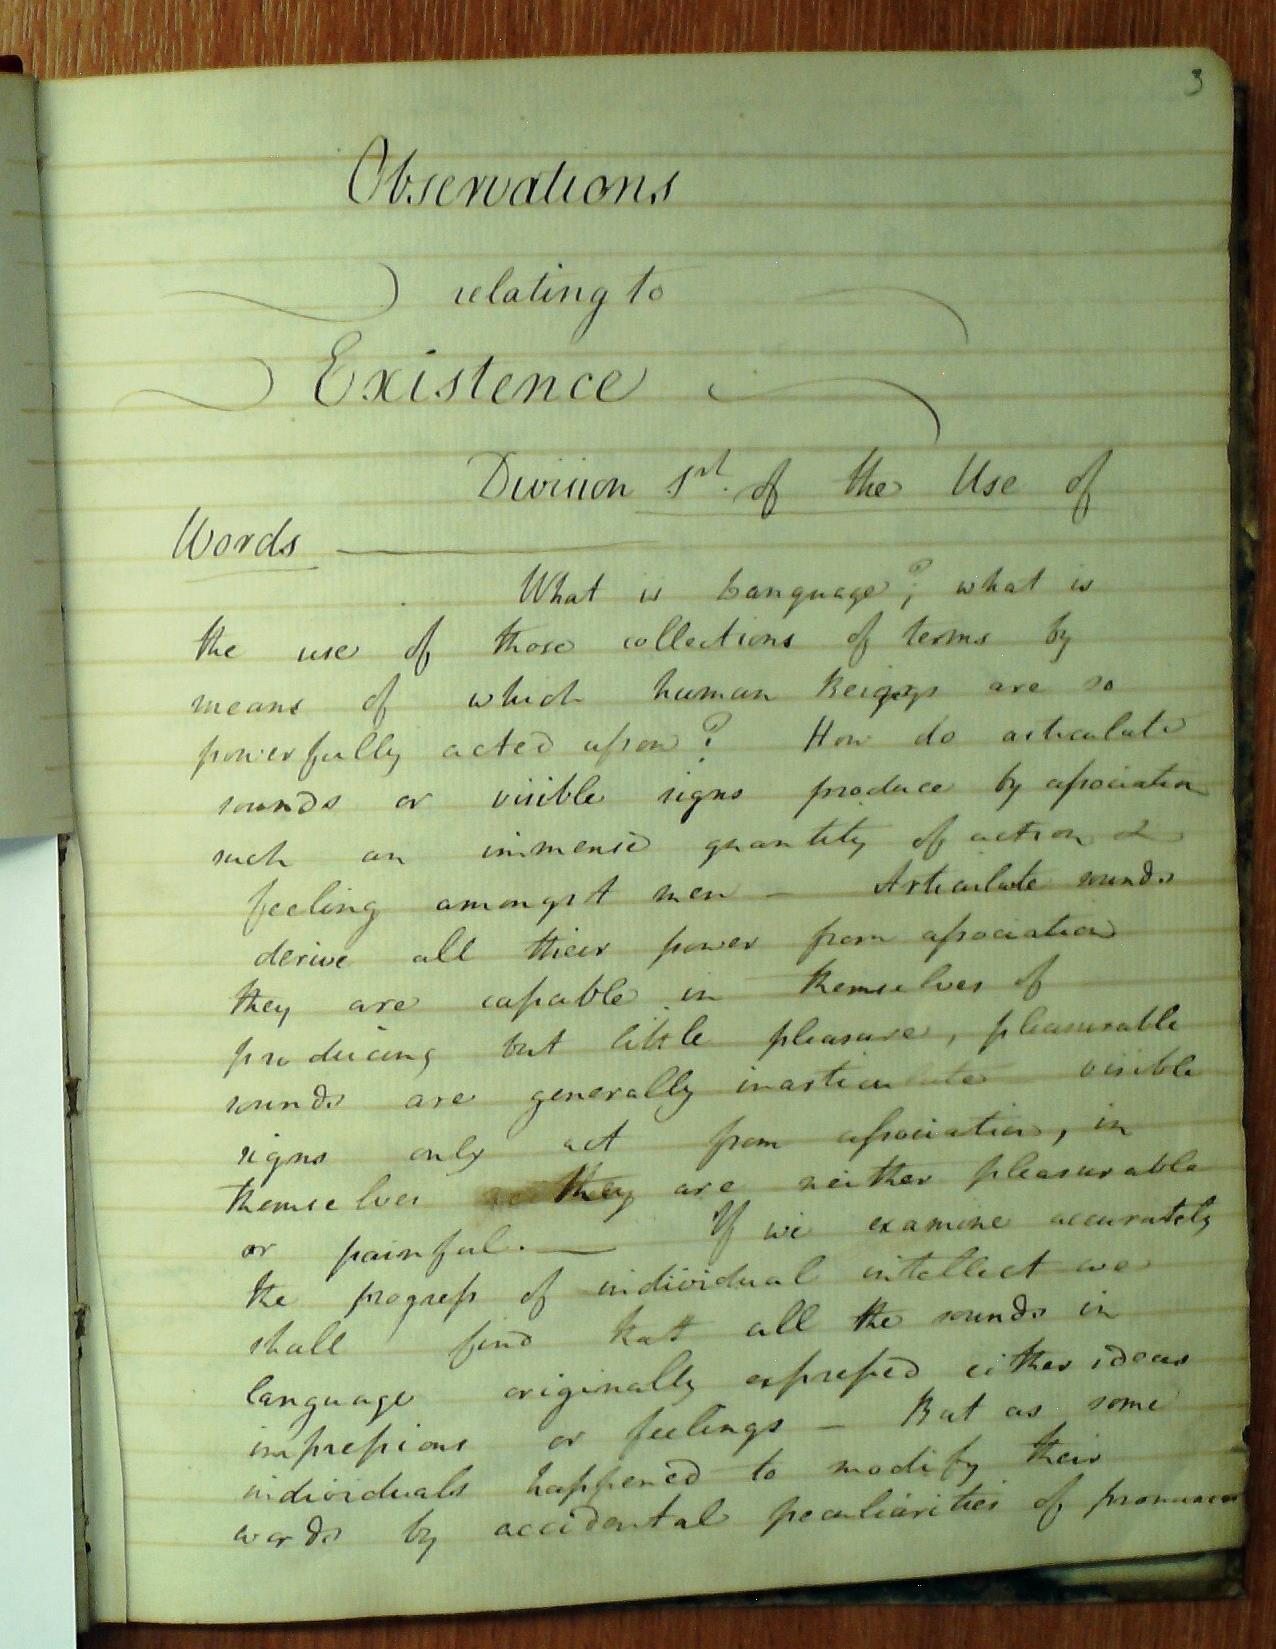 3
Observations
relating to
Existence
Division 1st. of the Use of
Words
What is Language?; what is
the use of those collections of terms by
means of which human Beings are so
powerfully acted upon? How do articulate
sounds or visible signs produce by association
such an immense quantity of action &
feeling amongst men — Articulate sounds
derive all their power from association
they are capable in themselves of
producing but little pleasure, pleasurable
sounds are generally inarticulate visible
signs only act from association, in
themselves they are neither pleasurable
or painful. — If we examine accurately
the progress of individual intellect we
shall find that all the sounds in
language originally expressed either ideas
impressions or feelings — But as some
individuals happened to modify their
words by accidental peculiarities of